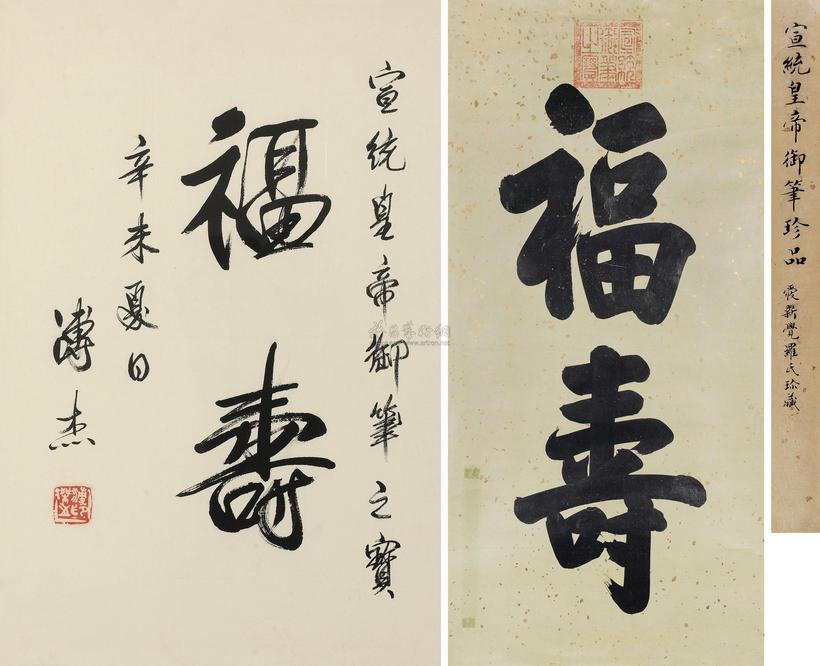 宣統皇帝御筆之寶
福壽
辛未夏日
溥杰
宣統御筆之寶
福壽
宣統皇帝御筆珍品
愛新覺羅氏珍藏
www.artron.net